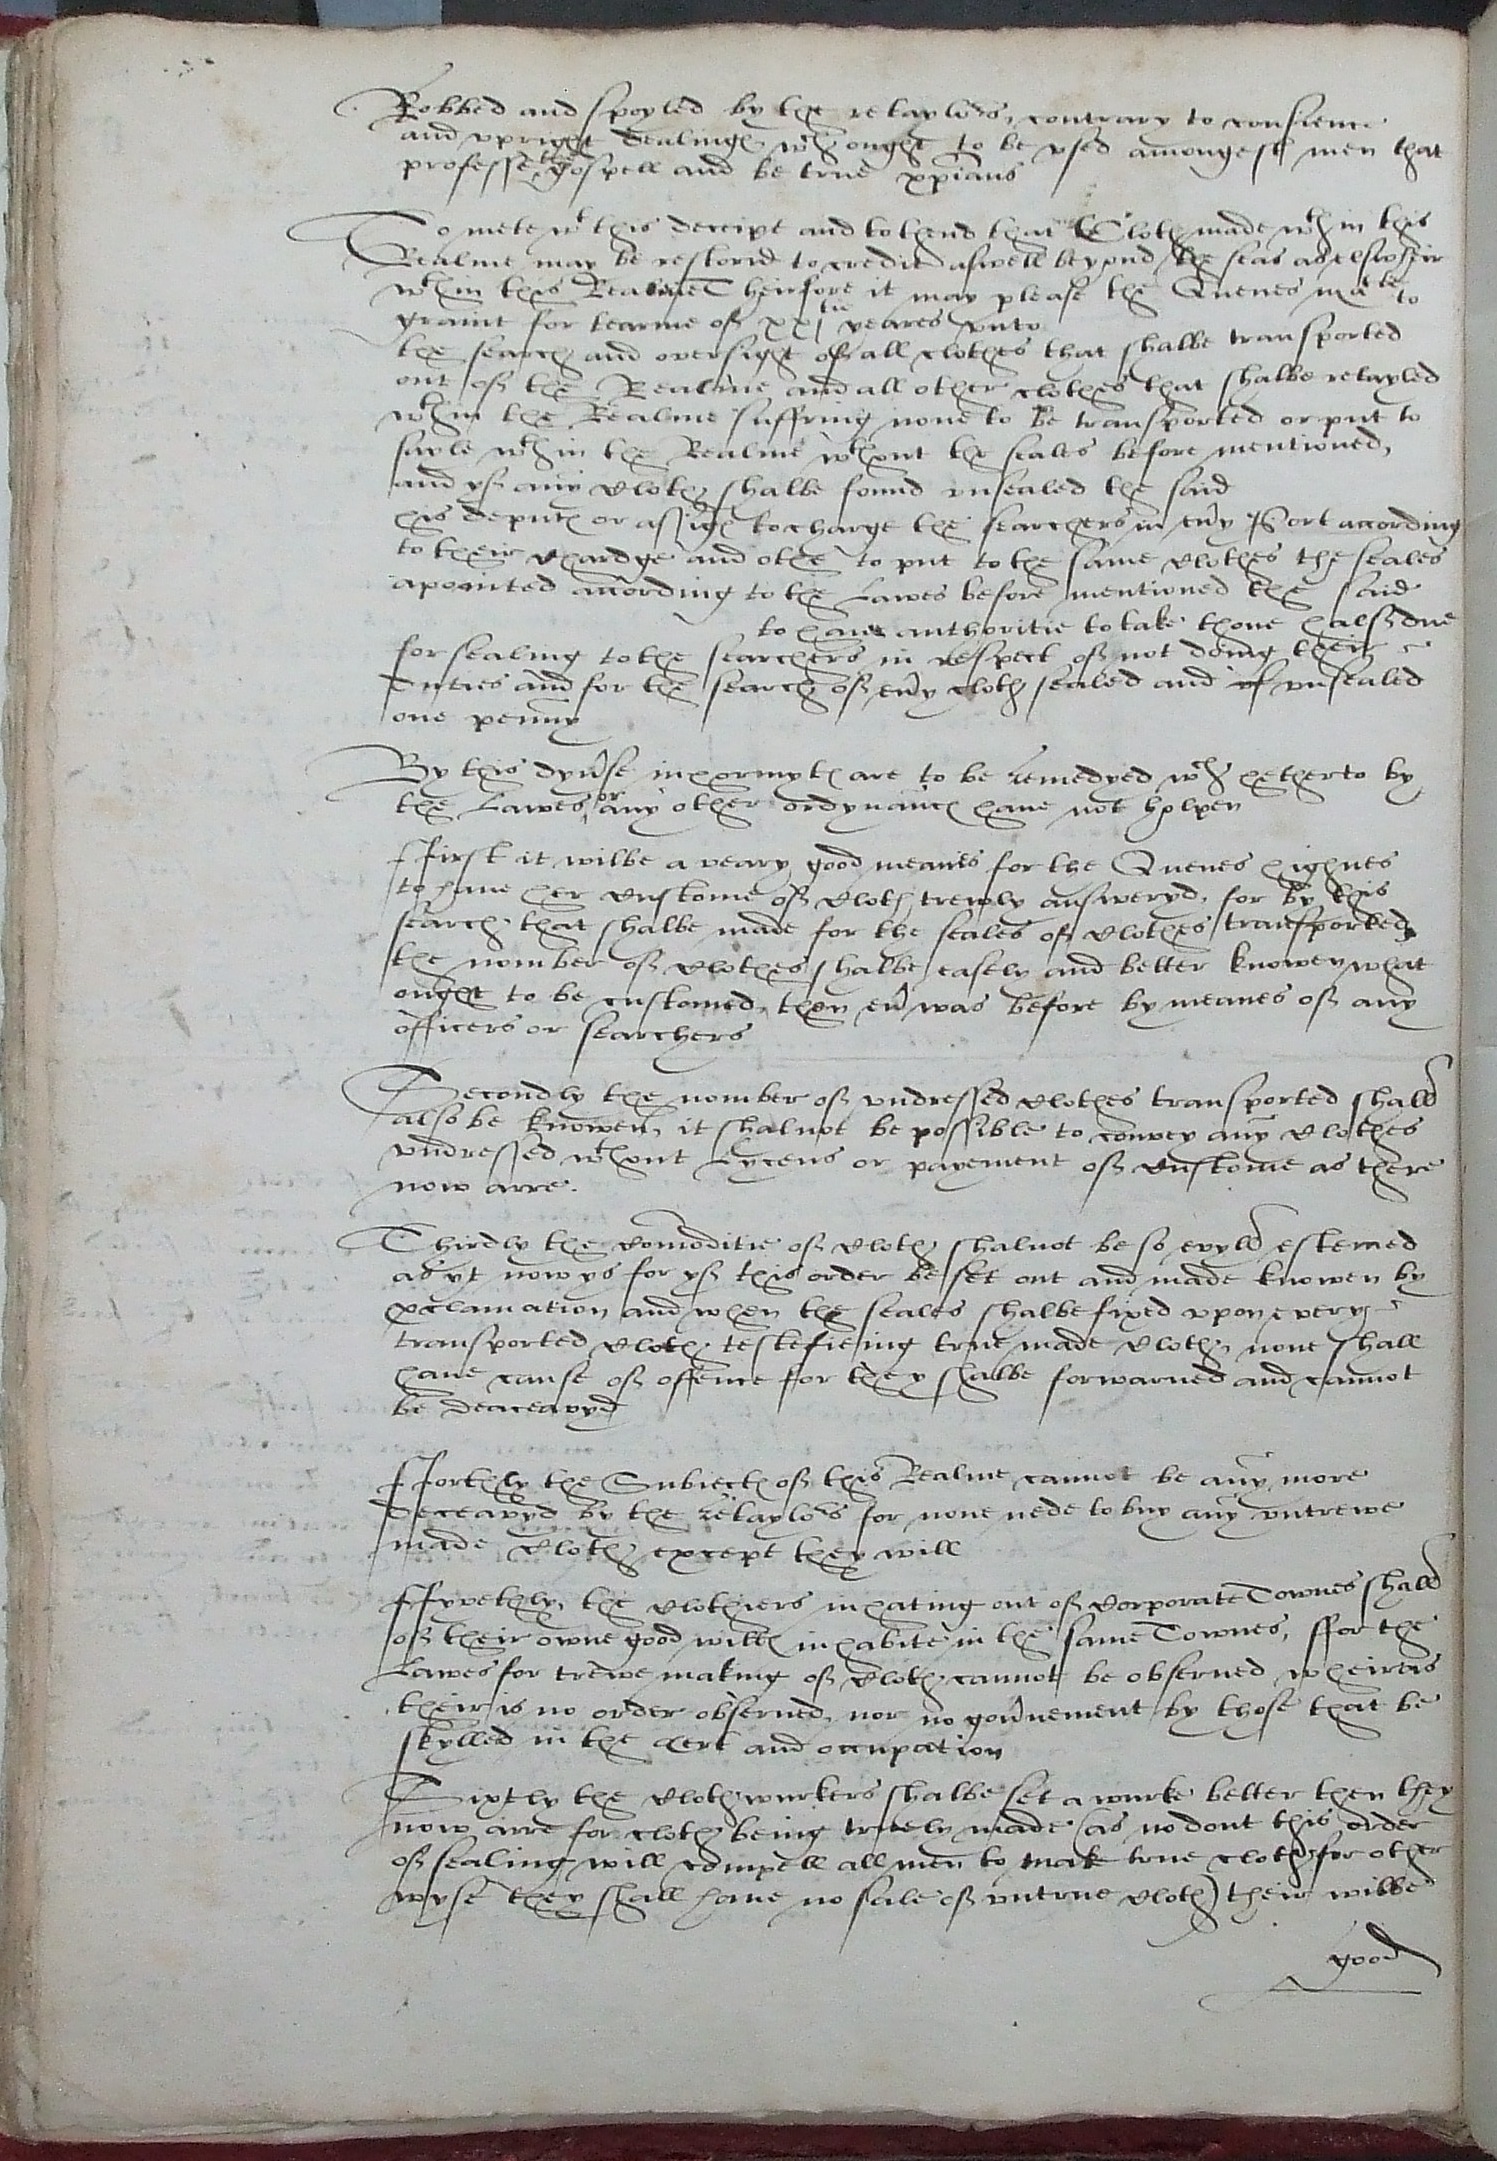 Robbed and spoyled by the retaylors, contrary to consience
and upright dealing wch ought to be used amongest men that
professe the gospell and be true xpians
To mete wt this deceipt and to thend that the Cloth made wthin this
Realme may be restorid to credit aswell beyond the seas as elswheir
wthin this Realme Theirfore it may please the Quenes matie to
graunt for tearme of xxjtie yeares unto
the search and oversight of all clothes that shalbe transported
out of the Realme and all other clothes that shalbe retayled
wthin the Realme suffring none to be transported or put to
sayle wthin the Realme wthout the seales before mentioned,
and yf any cloth shalbe found unsealed the said
his deputy or assign to charge the searchers in evy Port according
to their chardge and othe to put to the same clothes the seales
apointed according to the Lawes before mentioned the said
to have authoritie to take thone half due
for sealing to the searchers in respect of not doing their
duties and for the search of evy cloth sealed and unsealed
one penny
By this dyvse inhormyties are to be Remedyed wch hetherto by
the Lawes or any other ordynances have not holpen
ffirst it wilbe a veary good meanes for the Quenes highnes
to have her custome of cloth trewly answeryd, for by this
search that shalbe made for the seales of clothes transported
the nomber of clothes shalbe easely and better knowen what
ought to be customed, then ev was before by meanes of any
officers or searchers
Secondly the nomber of undressed clothes transported shall
also be knowen, it shal not be possible to convey any clothes
undressed wthout Lycens or payement of custome as there
now arre.
Thirdly the comoditie of cloth shal not be so evyll estemed
as yt now ys for yf this order be set out and made knowen by
pclamation and when the seales shalbe fixed upon every
transported cloth testefieing true made cloth, none shall
have cause of offence for they shalbe forwarned and cannot
be deaceavyd
fforthly the Subiects of this Realme cannot be any more
deceavyd by the Retaylors for none nede to buy any untrewe
made cloth except they will
ffyvethly, the clothiers inhabting out of Corporate Townes shall
of their owne good wills inhabite in the same Townes, ffor the
Lawes for trewe making of cloth cannot be observed wheiras
their is no order observed, nor no govnement by those that be
skylled in the Art and occupation
Sixtly the clothwurkers shalbe set a wurke better then they
now arre for cloth being truely made (as no dout this order
of sealing will compell all men to mak true cloth, for other
wyse they shall have no sale of untrue cloth) their wilbe
good